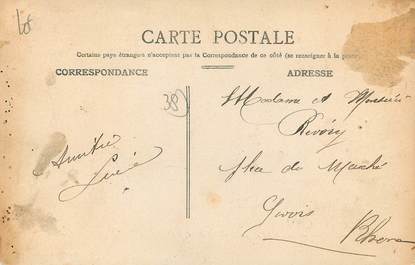 lot
CARTE POSTALE
Certains pays étrangers n'acceptent pas la Correspondance de ce côté (se renseigner à la poste
CORRESPONDANCE
ADRESSE
38
Madame et Monsieur
Rivory
Place du Marché
Givors
Rhône
Amitiés
Lucie